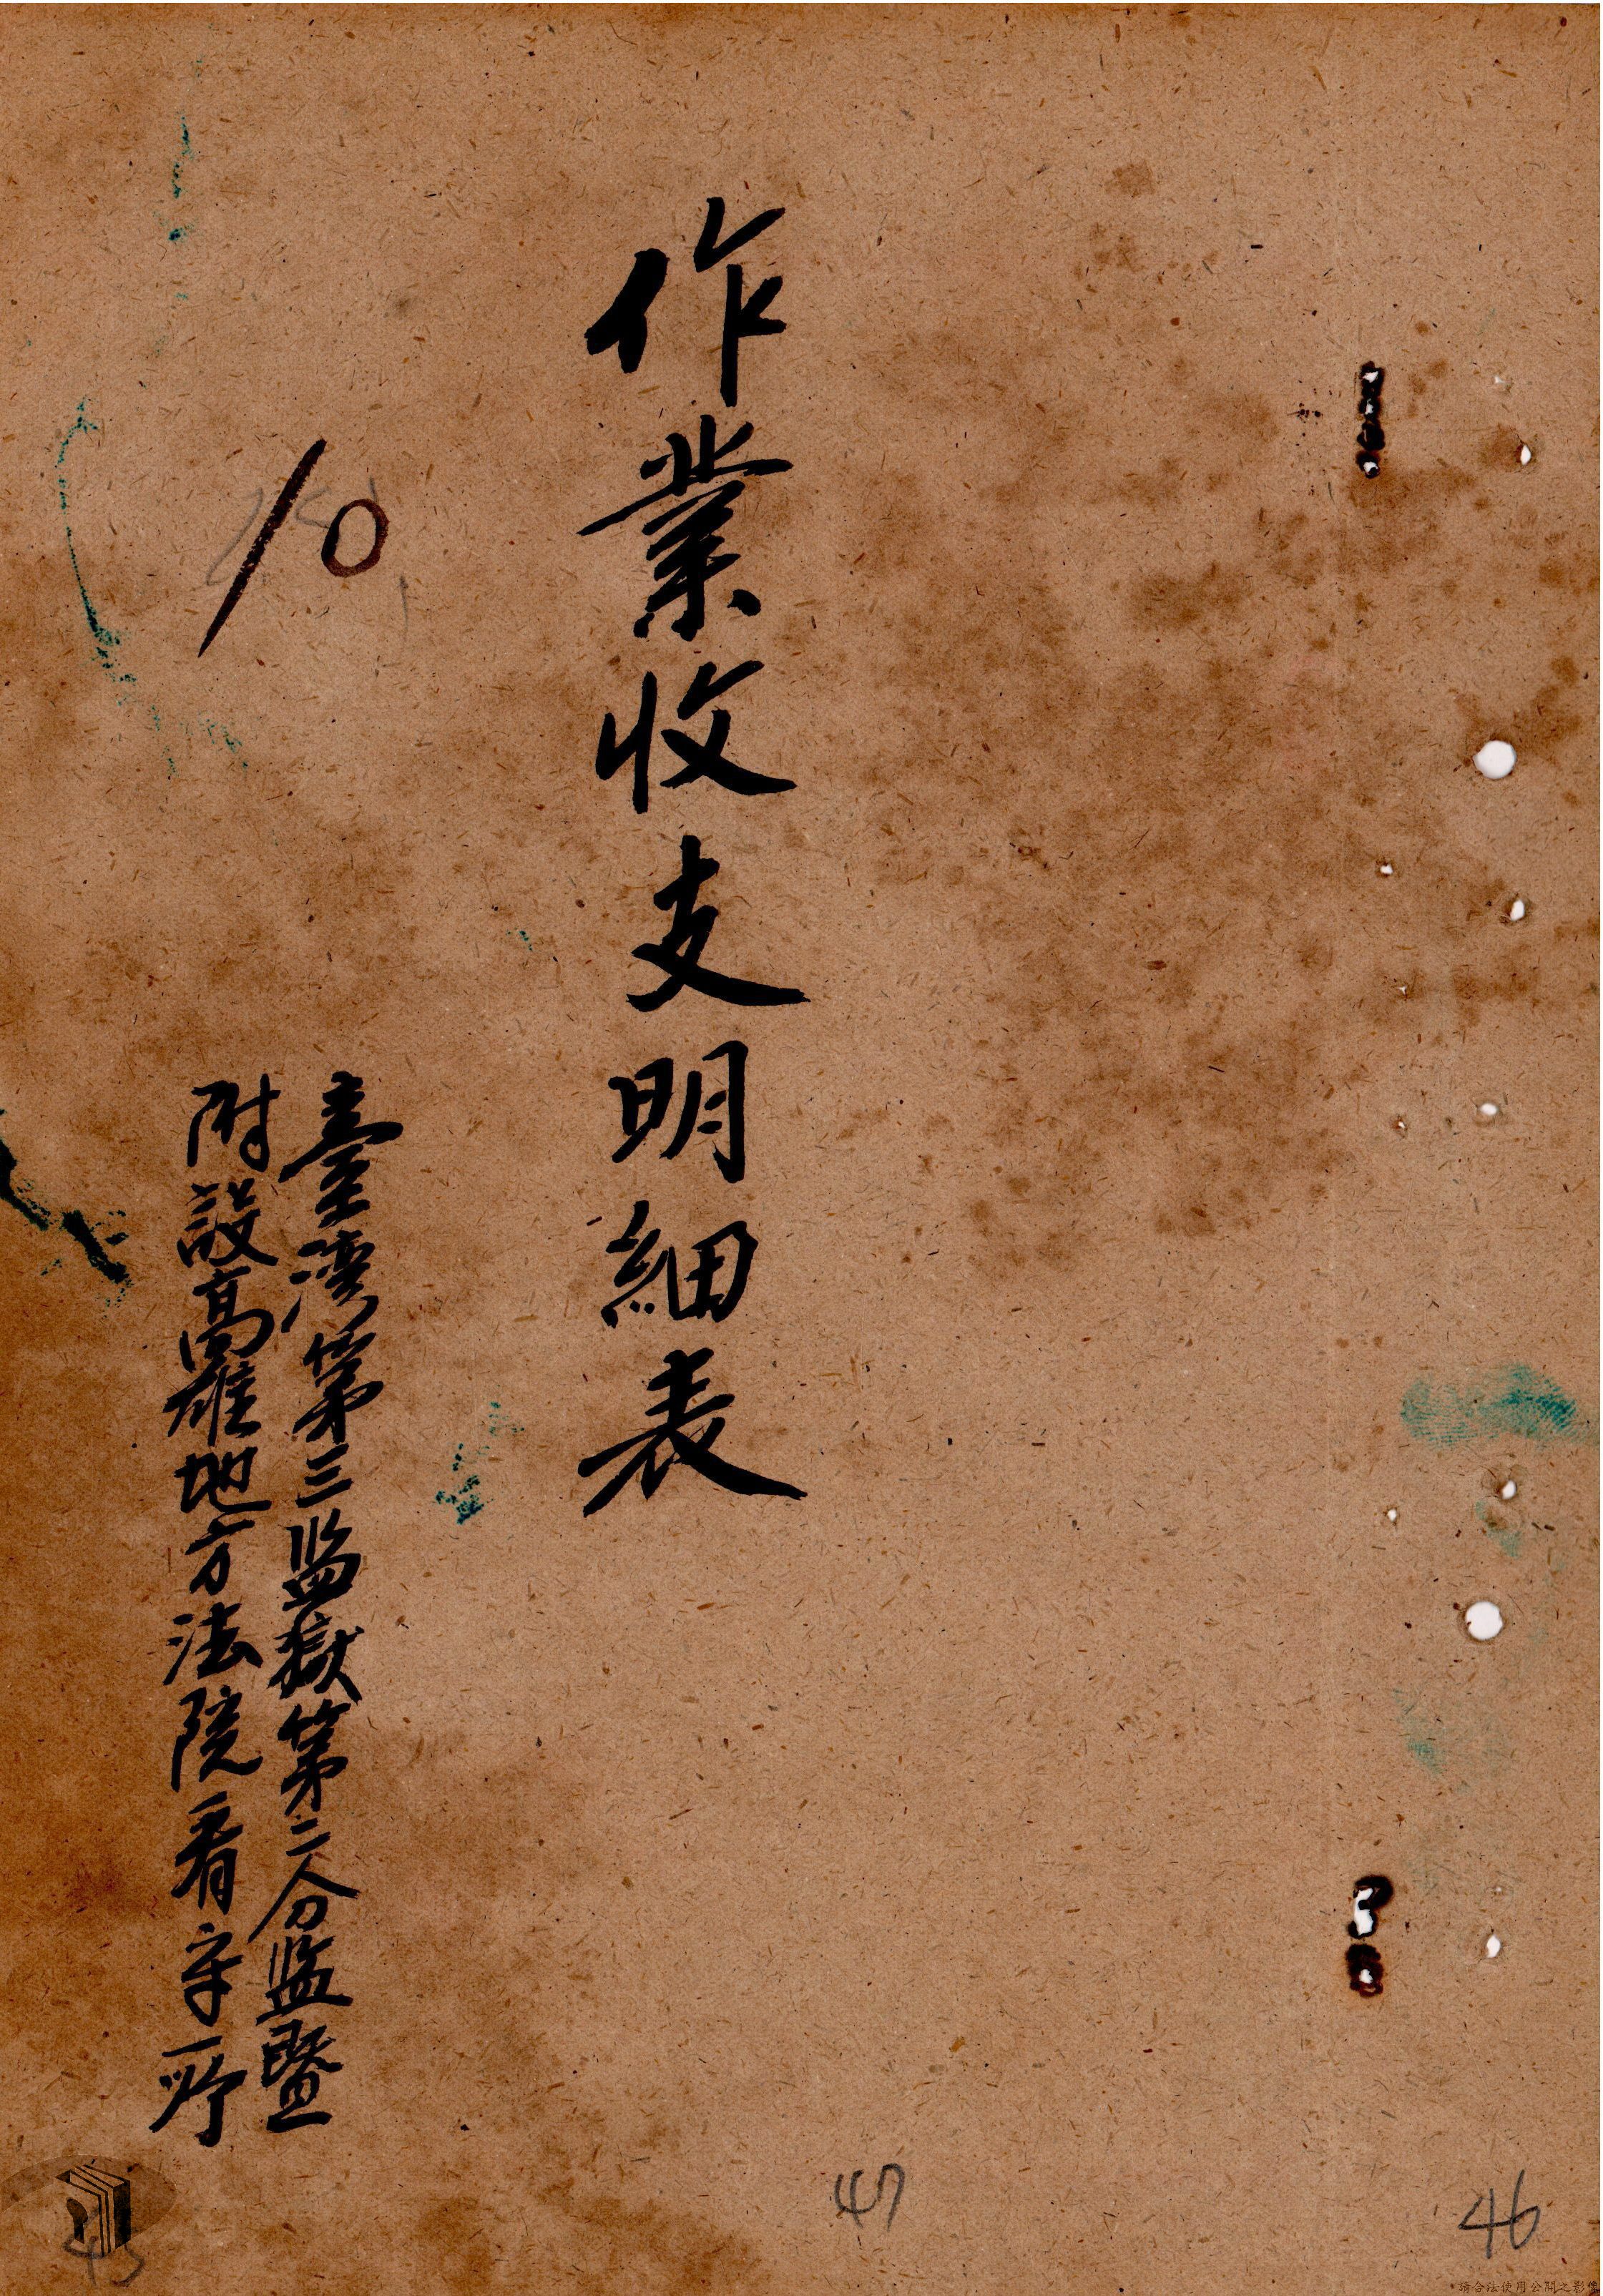 作業收支明細表
臺灣第三監獄第二分監暨
附設高雄地方法院看守所
10
47
46
45
請合法使用公開之影像